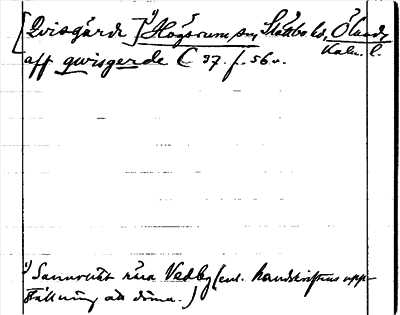 [Qvisgärde]¹⁾ Högsrum sn, Slättbo hd, Öland,
Kalm. l.
aff qwisgerde C 37. f. 56 v.
¹⁾ Sannolikt nära Vedby (enl. handskriftens upp-
ställning att döma.)